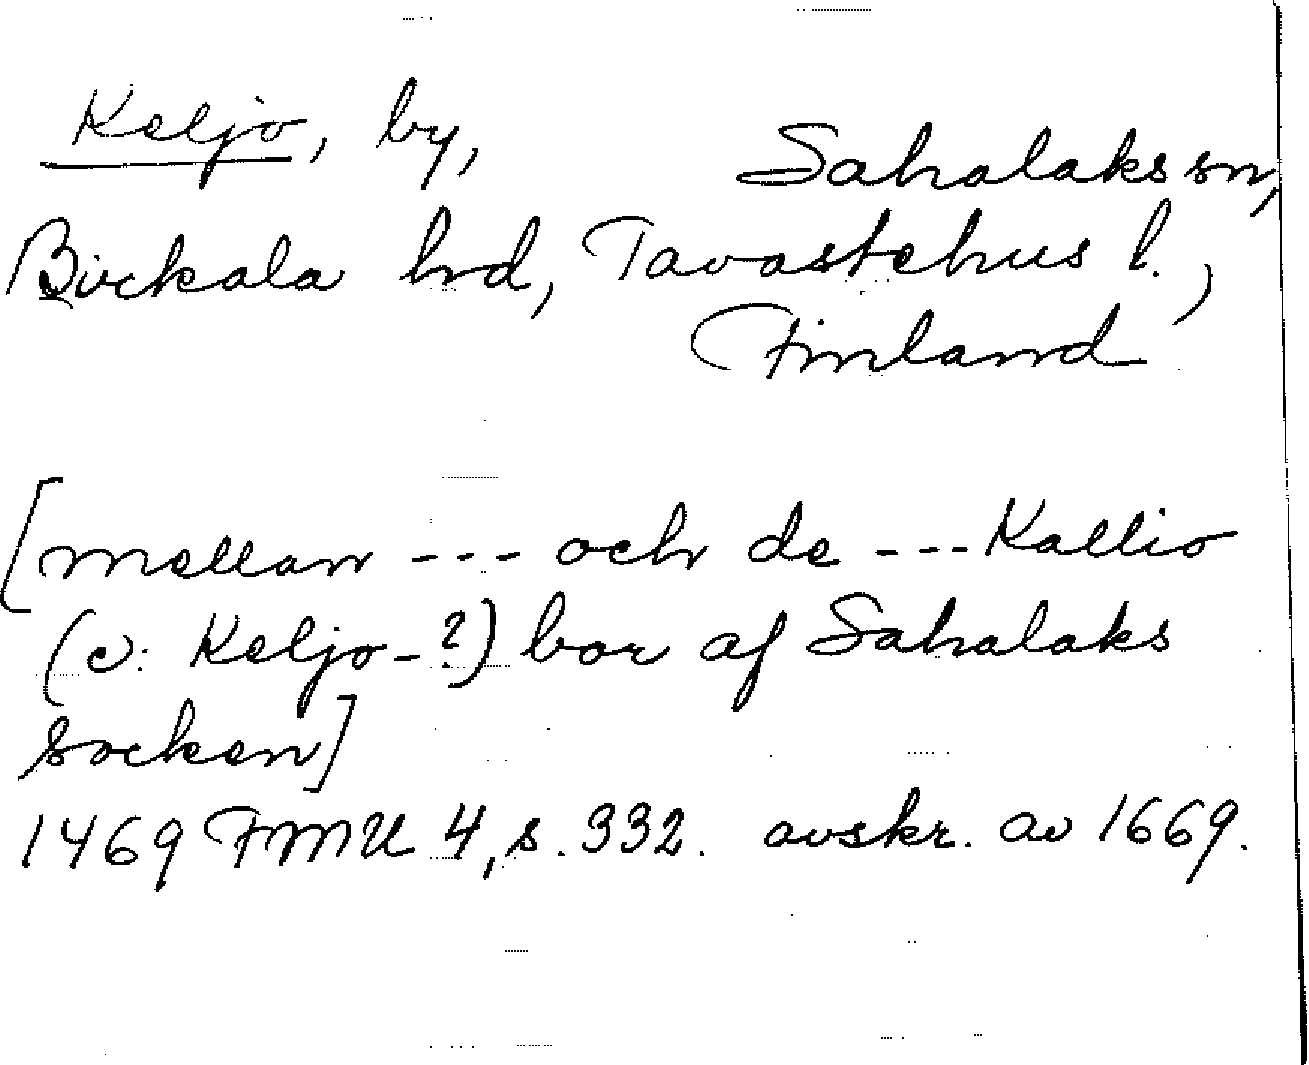 Keljo, by, Sahalaks sn,
Birkala hrd, Tavastehus l.,
Finland
[mellan --- och de --- Kallio
(ɔ: Keljo-?) bor af Sahalaks
socken]
1469 FMU 4, s. 332. avskr. av 1669.